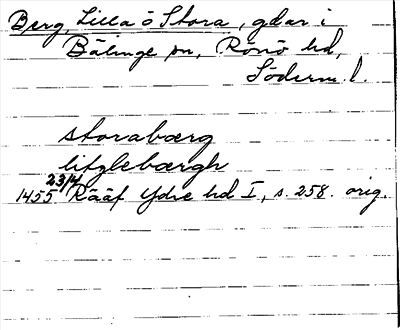 Berg, Lilla o Stora, gdar i
Bälinge sn, Rönö hd,
Söderm. l.
storabærg
litzlebærgh
1455 23/4 Rääf Ydre hd I, s. 258. orig.